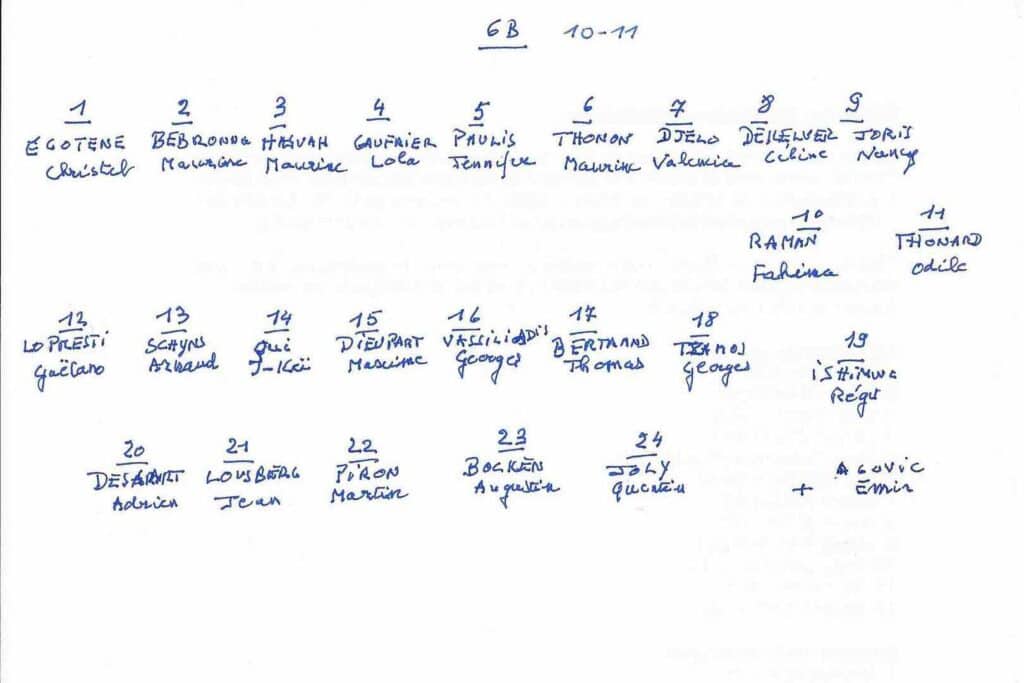 6B 10-11
1 2 3 4 5 6 7 8 9
EGOTENE BEBRONNA HAIVAH GAUFRIER PAULIS THONON DJELO DEKELVER JORIS
Christel Maurine Maurine Lola Jennifer Maurine Valencia Céline Nancy
10 11
RAMAN THONARD
Fahima Odile
12 13 14 15 16 17 18 19
LO PRESTI SCHYNS QUI DIEUPART VASSILIADIS BERTRAND TZAMOS ISHIMWE
Gaëtano Arnaud J-Keï Maxime Georges Thomas Georges Régis
20 21 22 23 24
LOUSBERG PIRON BOCKEN JOLY + AGOVIC
Adrien Jean Martin Augustin Quentin Emir